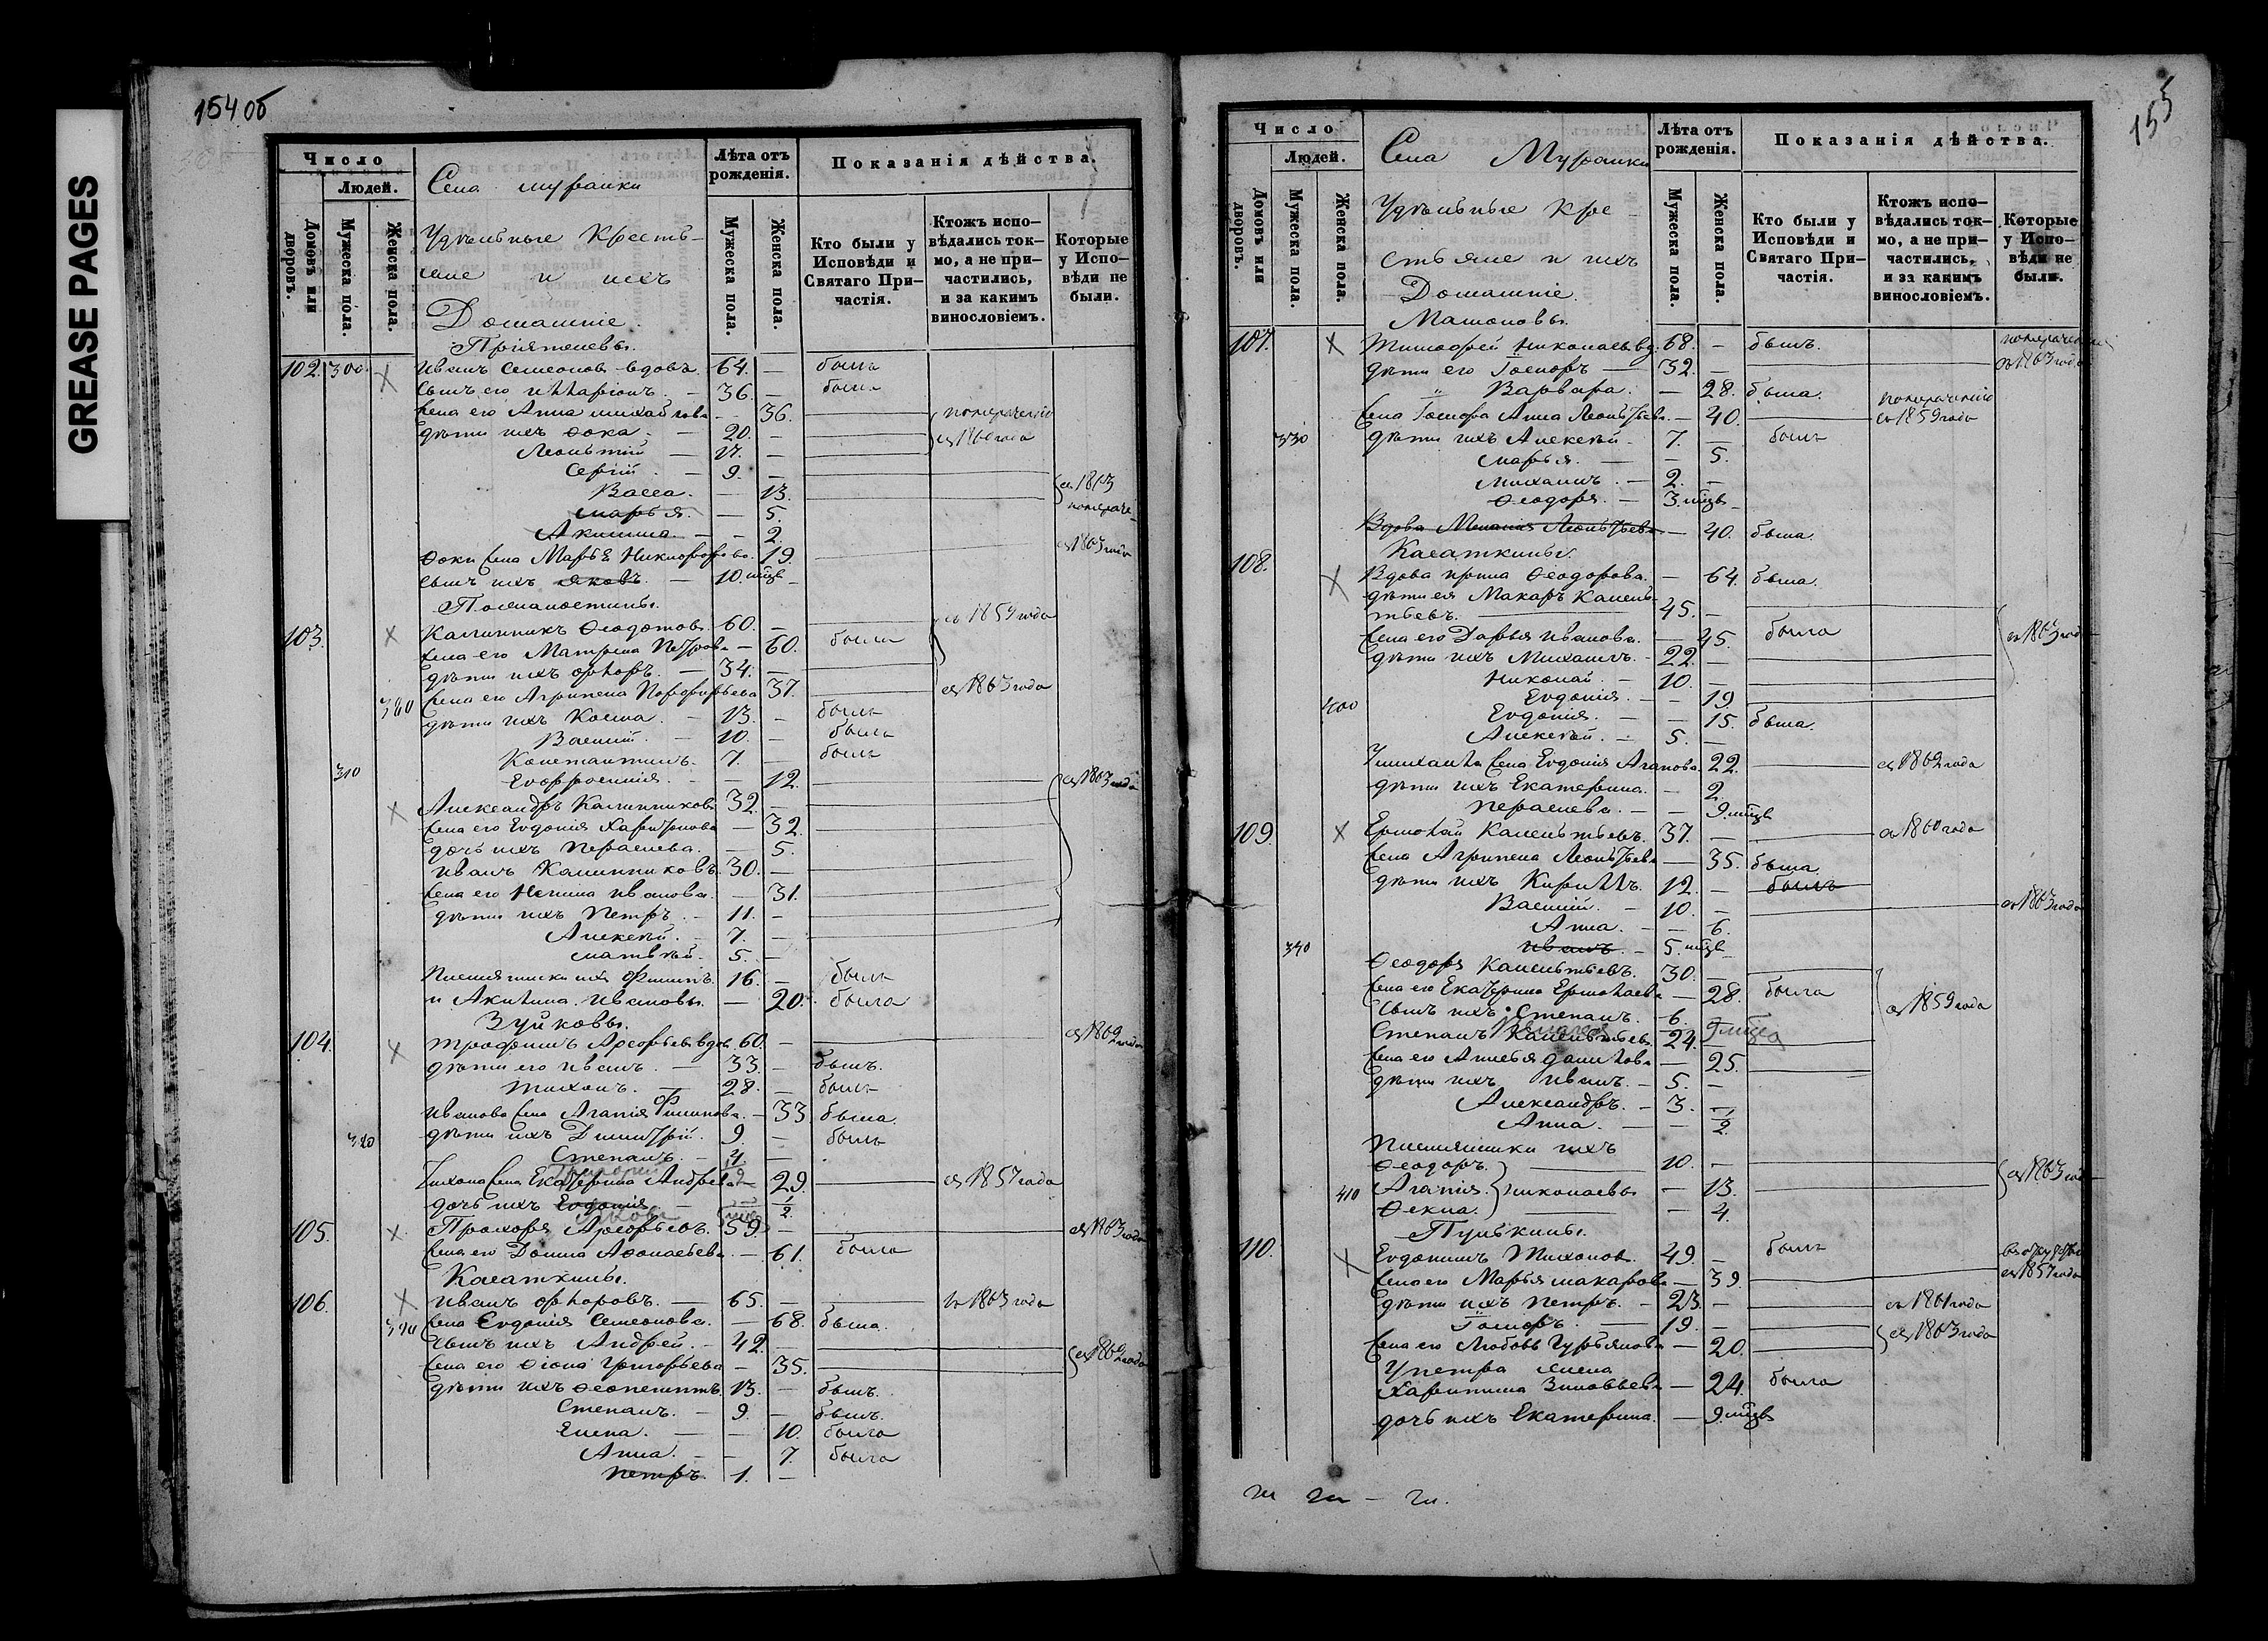 GREASE PAGES
154 об
Число
Людей.
Домовъ или дворовъ.
Мужеска пола.
Женска пола.
Села Муранки
Удѣльные Кресть-
яне и ихъ
Домашніе.
Лѣта отъ рожденія.
Мужеска пола.
Женска пола.
Показанія дѣйства.
Кто были у Исповѣди и Святаго При-частія.
Ктожъ испо-вѣдались ток-мо, а не при-частились, и за какимъ винословіемъ.
Которые у Испо-вѣди не были.
102. 300. Иванъ Семеоновъ вдовъ. 64. — былъ
Сынъ его Илларіонъ. — 36. — былъ
Жена его Анна Михайлова — 36.
дѣти ихъ Фока. — 20. — съ 1860 года
Леонтій — 17. —
Сергій. — 9. —
Васса. — 13. съ 1863
Марья. — 5.
Акилина. — 2.
Фоки жена Марья Никифорова. 19. съ 1863 года
сынъ ихъ Яковъ. — 10. мцвъ —
103. Каллиникъ Ѳеодотовъ. 60. — съ 1859 года
жена его Матрена Петрова — 60. была
дѣти ихъ Флоръ. — 34. —
380 жена его Агрипена Порфирьева 37. съ 1863 года
дѣти ихъ Косма. — 13. — былъ
Василій. — 10. — былъ
310 Константинъ. 7. — былъ
Евфросинія. — 12. съ 1863 года
Александръ Каллиниковъ 32. —
жена его Евдокія Харитонова — 32.
дочь ихъ Параскева. — 5.
Иванъ Каллиниковъ. 30. —
жена его Ненила Иванова. — 31.
дѣти ихъ Петръ. — 11. —
Алексѣй. — 7. —
Матвѣй. — 5. —
Племянники ихъ Филипъ. 16. — былъ
и Акилина Ивановы. — 20. была
Зуйковы.
104. Трофимъ Арефьевъ вдов. 60. — съ 1862 года
дѣти его Иванъ. — 33. — былъ.
Тихонъ. — 28. — былъ
Иванова жена Агапія Филипова. — 33. была.
320 дѣти ихъ Димитрій. 9. — былъ
Степанъ. — 4. —
Григорій
Тихона жена Екатерина Андреева 29. съ 1857 года
дочь ихъ Евдокія — ½.
105. Прохоръ Арефьевъ. 59. — съ 1863 года
жена его Домна Афонасьева. — 61. была
Касаткины.
106. Иванъ Флоровъ. — 65. — съ 1863 года
390 жена Евдокія Семеонова. — 68. была.
сынъ ихъ Андрей. — 42. — съ 1862 года
жена его Ѳіона Григорьева — 35.
дѣти ихъ Ѳеопемптъ. 13. — былъ.
Степанъ. — 9. — былъ.
Елена. — 10. была
Анна. — 7. была
Петръ. 1. —
155
Число
Людей.
Домовъ или дворовъ.
Мужеска пола.
Женска пола.
Села Муранки
Удѣльные Кре-
стьяне и ихъ
Домашніе.
Лѣта отъ рожденія.
Мужеска пола.
Женска пола.
Показанія дѣйства.
Кто были у Исповѣди и Святаго При-частія.
Ктожъ испо-вѣдались ток-мо, а не при-частились, и за какимъ винословіемъ.
Которые у Испо-вѣди не были.
107. Тимофей Николаевъ вд. 68. — былъ.
дѣти его Іосифъ — 32. — съ 1863 года
Варвара. — 28. была.
жена Іосифа Анна Леонтьева. — 40. съ 1859 года
330 дѣти ихъ Алексѣй. 7. — былъ
Марья. — 5.
Михаилъ. — 2. —
Ѳеодоръ. — 3. мцвъ
Вдова Меланія Леонтьева — 40. была.
Касаткины.
108. Вдова Ирина Ѳеодорова. — 64. была.
дѣти ея Макаръ Клемен-
тьевъ. 45. —
жена его Дарья Иванова. — 45. была съ 1863 года
дѣти ихъ Михаилъ. — 22. —
Николай. — 10. —
400 Евдокія. — 19.
Евдокія. — 15. была.
Алексѣй. — 5. —
У Михаила жена Евдокія Агапова. 22. съ 1862 года
дѣти ихъ Екатерина. — 2.
Параскева. — 9. мцвъ
109. Ермолай Клементьевъ. 37. — съ 1860 года
жена Агрипена Леонтьева — 35. была.
дѣти ихъ Кириллъ. 12. — былъ
Василій. — 10. — съ 1863 года
Анна. — 6.
340 Иванъ. — 5. мцвъ
Ѳеодоръ Клементьевъ. 30. —
жена его Екатерина Ермолаева — 28. была съ 1859 года
сынъ ихъ Степанъ. — 6. —
Степанъ Клементьевъ 24. —
жена его Анисья Данилова — 25.
дѣти ихъ Иванъ. — 5. —
Александръ. — 3. —
Анна. — ½.
Племянники ихъ
Ѳеодоръ. 10. — съ 1863 года
410 Агапія. Николаевы — 13.
Ѳекла. — 4.
Пулькины.
110. Евдокимъ Тихонов. 49. — былъ
жена его Марья Макарова — 39. съ 1857 года
дѣти ихъ Петръ. — 23. — съ 1861 года
Іосифъ. — 19. — съ 1863 года
жена его Любовь Гурьянова — 20.
У Петра жена
Харитина Зиновьева — 24. была
дочь ихъ Екатерина. — 9. мцвъ